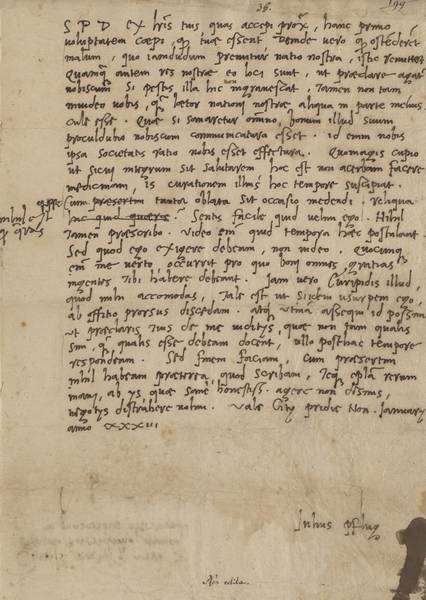 36.
199
S P D Ex lris tuis quas accepi prox, hanc primo
voluptatem coepi, q tuae essent Deinde vero q ostederet
malum, quo iamdudum premitur natio nostra, isthic remittere
Quamq autem res nostrae eo loci sunt, ut praeclare agat
nobiscum si pestis illa hic ingravescat. Tamen non tam
invideo vobis, q laetor nationi nostrae aliqua in parte melius
esse. Quae si sanaretur omnino, bonum illud suum
proculdubio nobiscum communicatura esset. id enim nobis
ipsa societatis ratio nobis esset effectura. Quo magis cupio
ut sicuj integrum sit salutarem hoc est non acerbam facere
non
medicinam, is curationem illius hoc tempore suscipiat.
Cum praesertim tanta oblata sit occasio medendi. Reliqua
nihil est
q quaeras
hic quid quaeris? Sentis facile quid velim ego. Nihil
tamen praescribo. Video em quid tempora haec postulant.
Sed quod ego exigere debeam, non video. Quocunq
em me verto, occurrit pro quo boni omnes gratias
ingentes tibi habere debeant. Iam vero Euripidis illud,
quod mihi accomodas, tale est ut si idem usurpem ego,
ab officio prorsus discedam. atq utina assequi id possim
ut praeclaris tuis de me iuditijs, quae non tam qualis
sim, q qualis esse debeam docent, ullo posthac tempore
respondeam. Sed finem faciam, cum praesertim
nihil habeam praeterea, quod scribam, Teq eplam rerum
mearum, ab ijs quae sane honestiss. agere non desinis,
negotijs distrahere nolim. Vale Cizae pridie Non. Ianuarij
anno XXXIII
Iulius Pflug
Non edita.